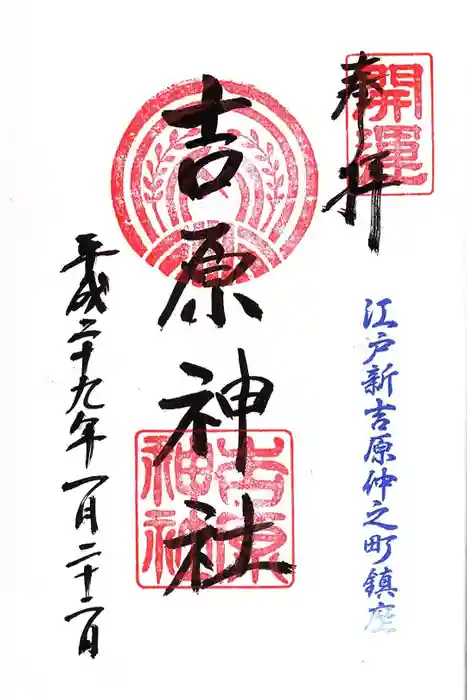 奉拝
開運
江戸新吉原仲之町鎮座
吉原神社
吉原神社
平成二十九年一月二十二日